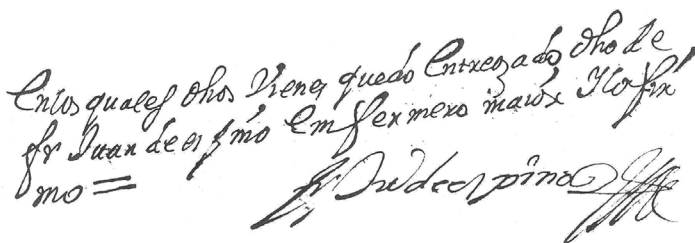 En los quales dhos Vienes quedo Entregado dho de
fr Juan de espino Emfermero maior Y lo fir
mo =
fr Ju de espino